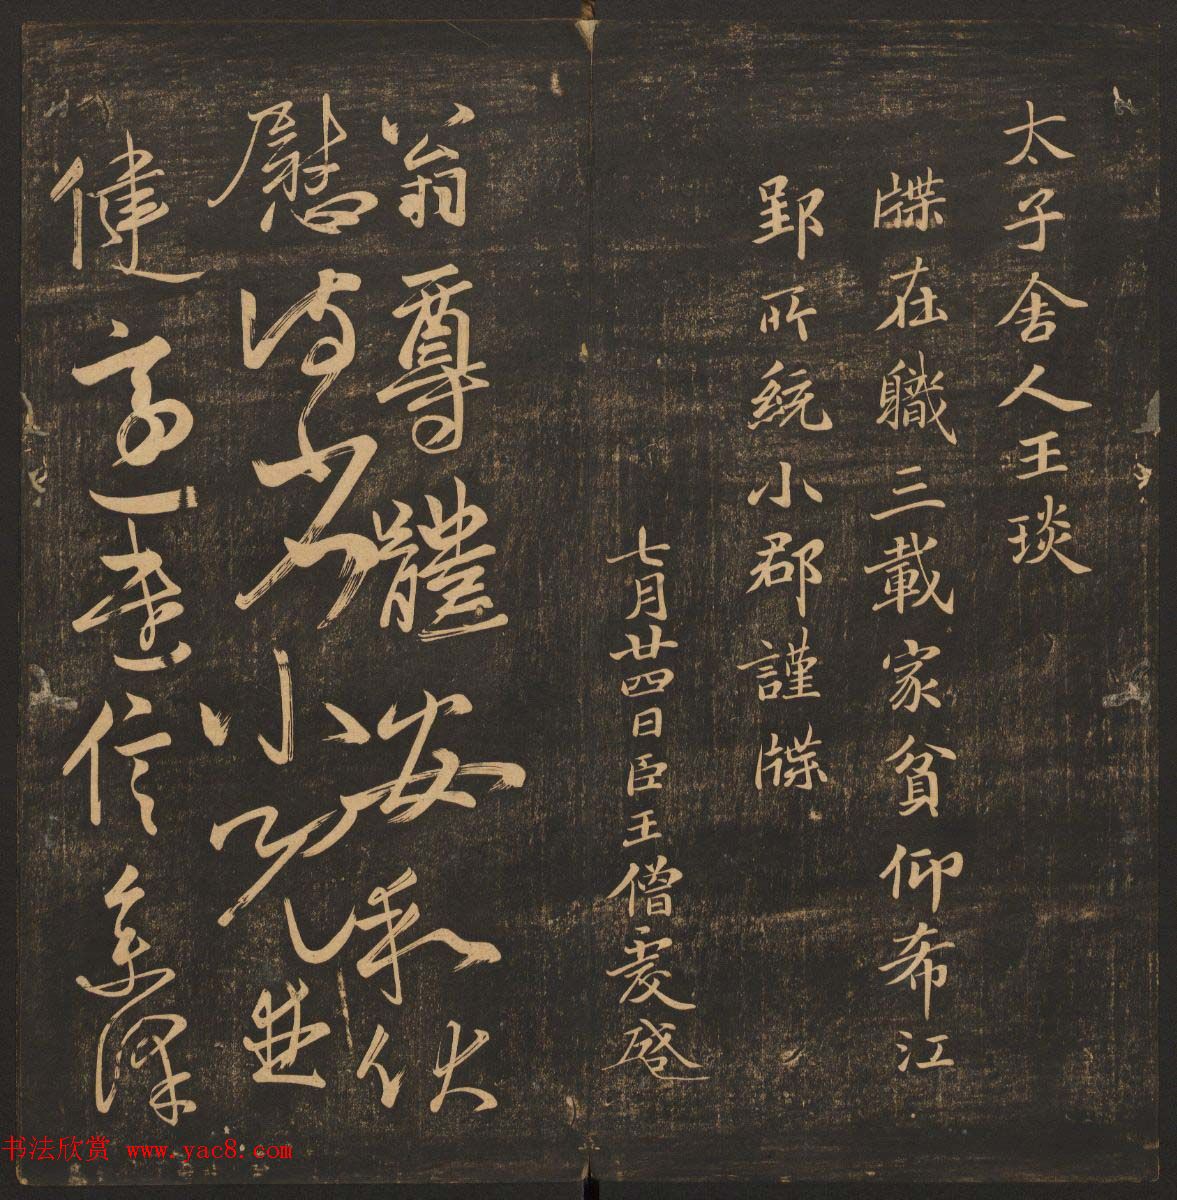 太子舍人王琰
牒在職三載家貧仰希江
郢所統小郡謹牒
七月廿四日臣王僧虔啓
翁尊體安和伏
慰侍省小兒並
健適遣信集澤
书法欣赏 www.yac8.com